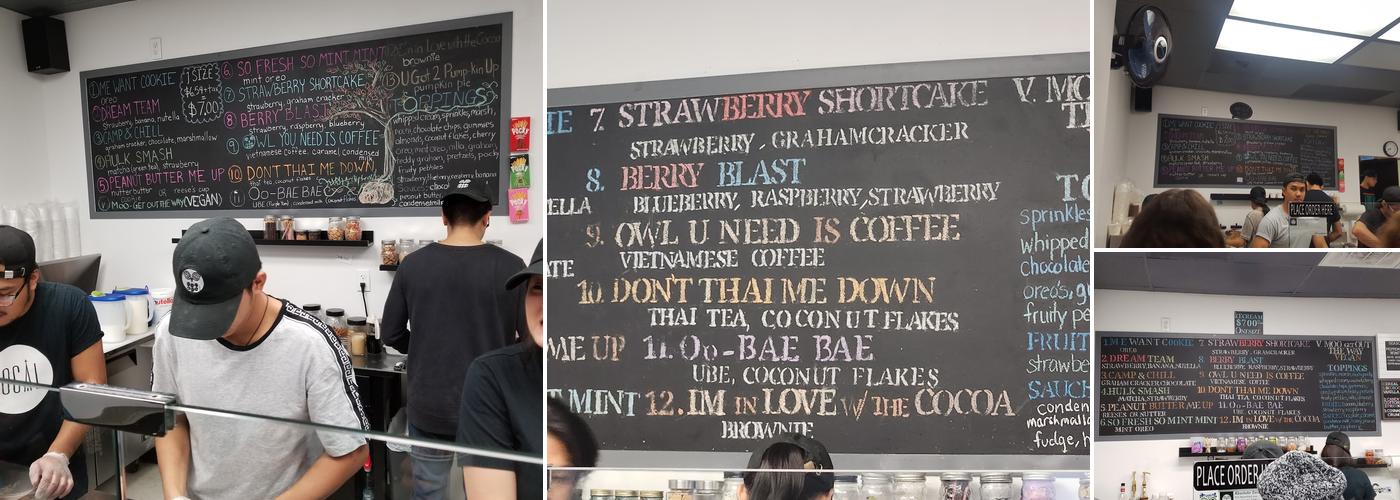 1 ME WANT COOKIE
oreo
2 DREAM TEAM
strawberry, banana, nutella
3 CAMP & CHILL
graham cracker, chocolate, marshmallow
4 HULK SMASH
matcha (green tea), strawberry
5 PEANUT BUTTER ME UP
nutter butter OR reese's cup
V MOO-GET OUT THE WAY (VEGAN)
1 SIZE
$6.54+tax
$7.00
6. SO FRESH SO MINT MINT
mint oreo
7 STRAWBERRY SHORTCAKE
strawberry, graham cracker
8 BERRY BLAST
strawberry, raspberry, blueberry
9 OWL YOU NEED IS COFFEE
vietnamese coffee, caramel, condensed milk
10 DON'T THAI ME DOWN
thai tea, coconut flakes
11 Oo-BAE BAE
I'm in Love with the Cocoa
brownie
13 U Got 2 Pump-kin Up
pumpkin pie
TOPPINGS
whipped cream, sprinkles, mochi,
nuts, chocolate chips, gummies,
almonds, coconut flakes, cherry
oreo, mint oreo, nilla, graham,
teddy graham, pretzels, pocky
fruity pebbles
strawberry, blueberry, raspberry, banana
condensed milk
POCKY
nutella
LOCAL
7. STRAWBERRY SHORTCAKE
STRAWBERRY, GRAHAMCRACKER
8. BERRY BLAST
BLUEBERRY, RASPBERRY, STRAWBERRY
9. OWL U NEED IS COFFEE
VIETNAMESE COFFEE
10. DON'T THAI ME DOWN
THAI TEA, COCONUT FLAKES
ME UP 11. Oo-BAE BAE
UBE, COCONUT FLAKES
T MINT 12. IM IN LOVE W/ THE COCOA
BROWNIE
IE
ELLA
ATE
V. MO
TO
sprinkles
whipped
Chocolate
oreo's, g
fruity pe
FRUIT
strawbe
SAUC
conden
marshmallo
fudge, h
PLACE ORDER HERE
ICECREAM
$7.00
ONE SIZE
1. ME WANT COOKIE
OREO
2. DREAM TEAM
STRAWBERRY, BANANA, NUTELLA
3. CAMP & CHILL
GRAHAM CRACKER CHOCOLATE
4. HULK SMASH
MATCHA, STRAWBERRY
5. PEANUT BUTTER ME UP
REESE'S OR NUTTER
6. SO FRESH SO MINT MINT
MINT OREO
7 STRAWBERRY SHORTCAKE
STRAWBERRY, GRAHAMCRACKER
8. BERRY BLAST
BLUEBERRY, RASPBERRY, STRAWBERRY
9. OWL U NEED IS COFFEE
VIETNAMESE COFFEE
10. DON'T THAI ME DOWN
THAI TEA, COCONUT FLAKES
11. Oo-BAE BAE
UBE COCONUT FLAKES
12. IM IN LOVE W/ THE COCOA
BROWNIE
V. MOO GET OUT
THE WAY
VEGAN
TOPPINGS
PLACE ORDER H